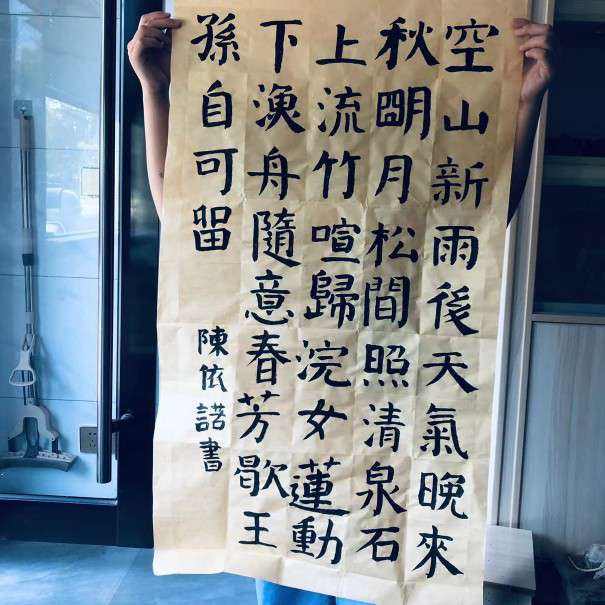 空山新雨後天氣晚來
秋朙月松間照清泉石
上流竹喧歸浣女蓮動
下漁舟隨意春芳歇王
孫自可留
陳依諾書